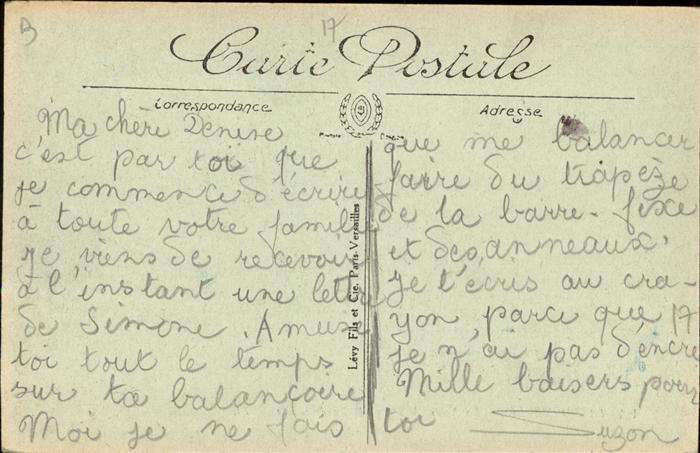 B
17
Carte Postale
Correspondance
Adresse
Ma chèri Denise
c'est par toi que
je commence d'écrire
à toute votre famille
je viens de recevoir
à l'instant une lettre
de Simone. Amuse
toi tout le temps
sur ta balançoire
Moi je ne fais
Lévy Fils et Cie, Paris-Versailles
que me balancer
faire du trapèze
de la barre-fixe
et des anneaux.
je t'écris au cra-
yon parce que 17
je n'ai pas d'encre
Mille baisers pour
toi
Suzon